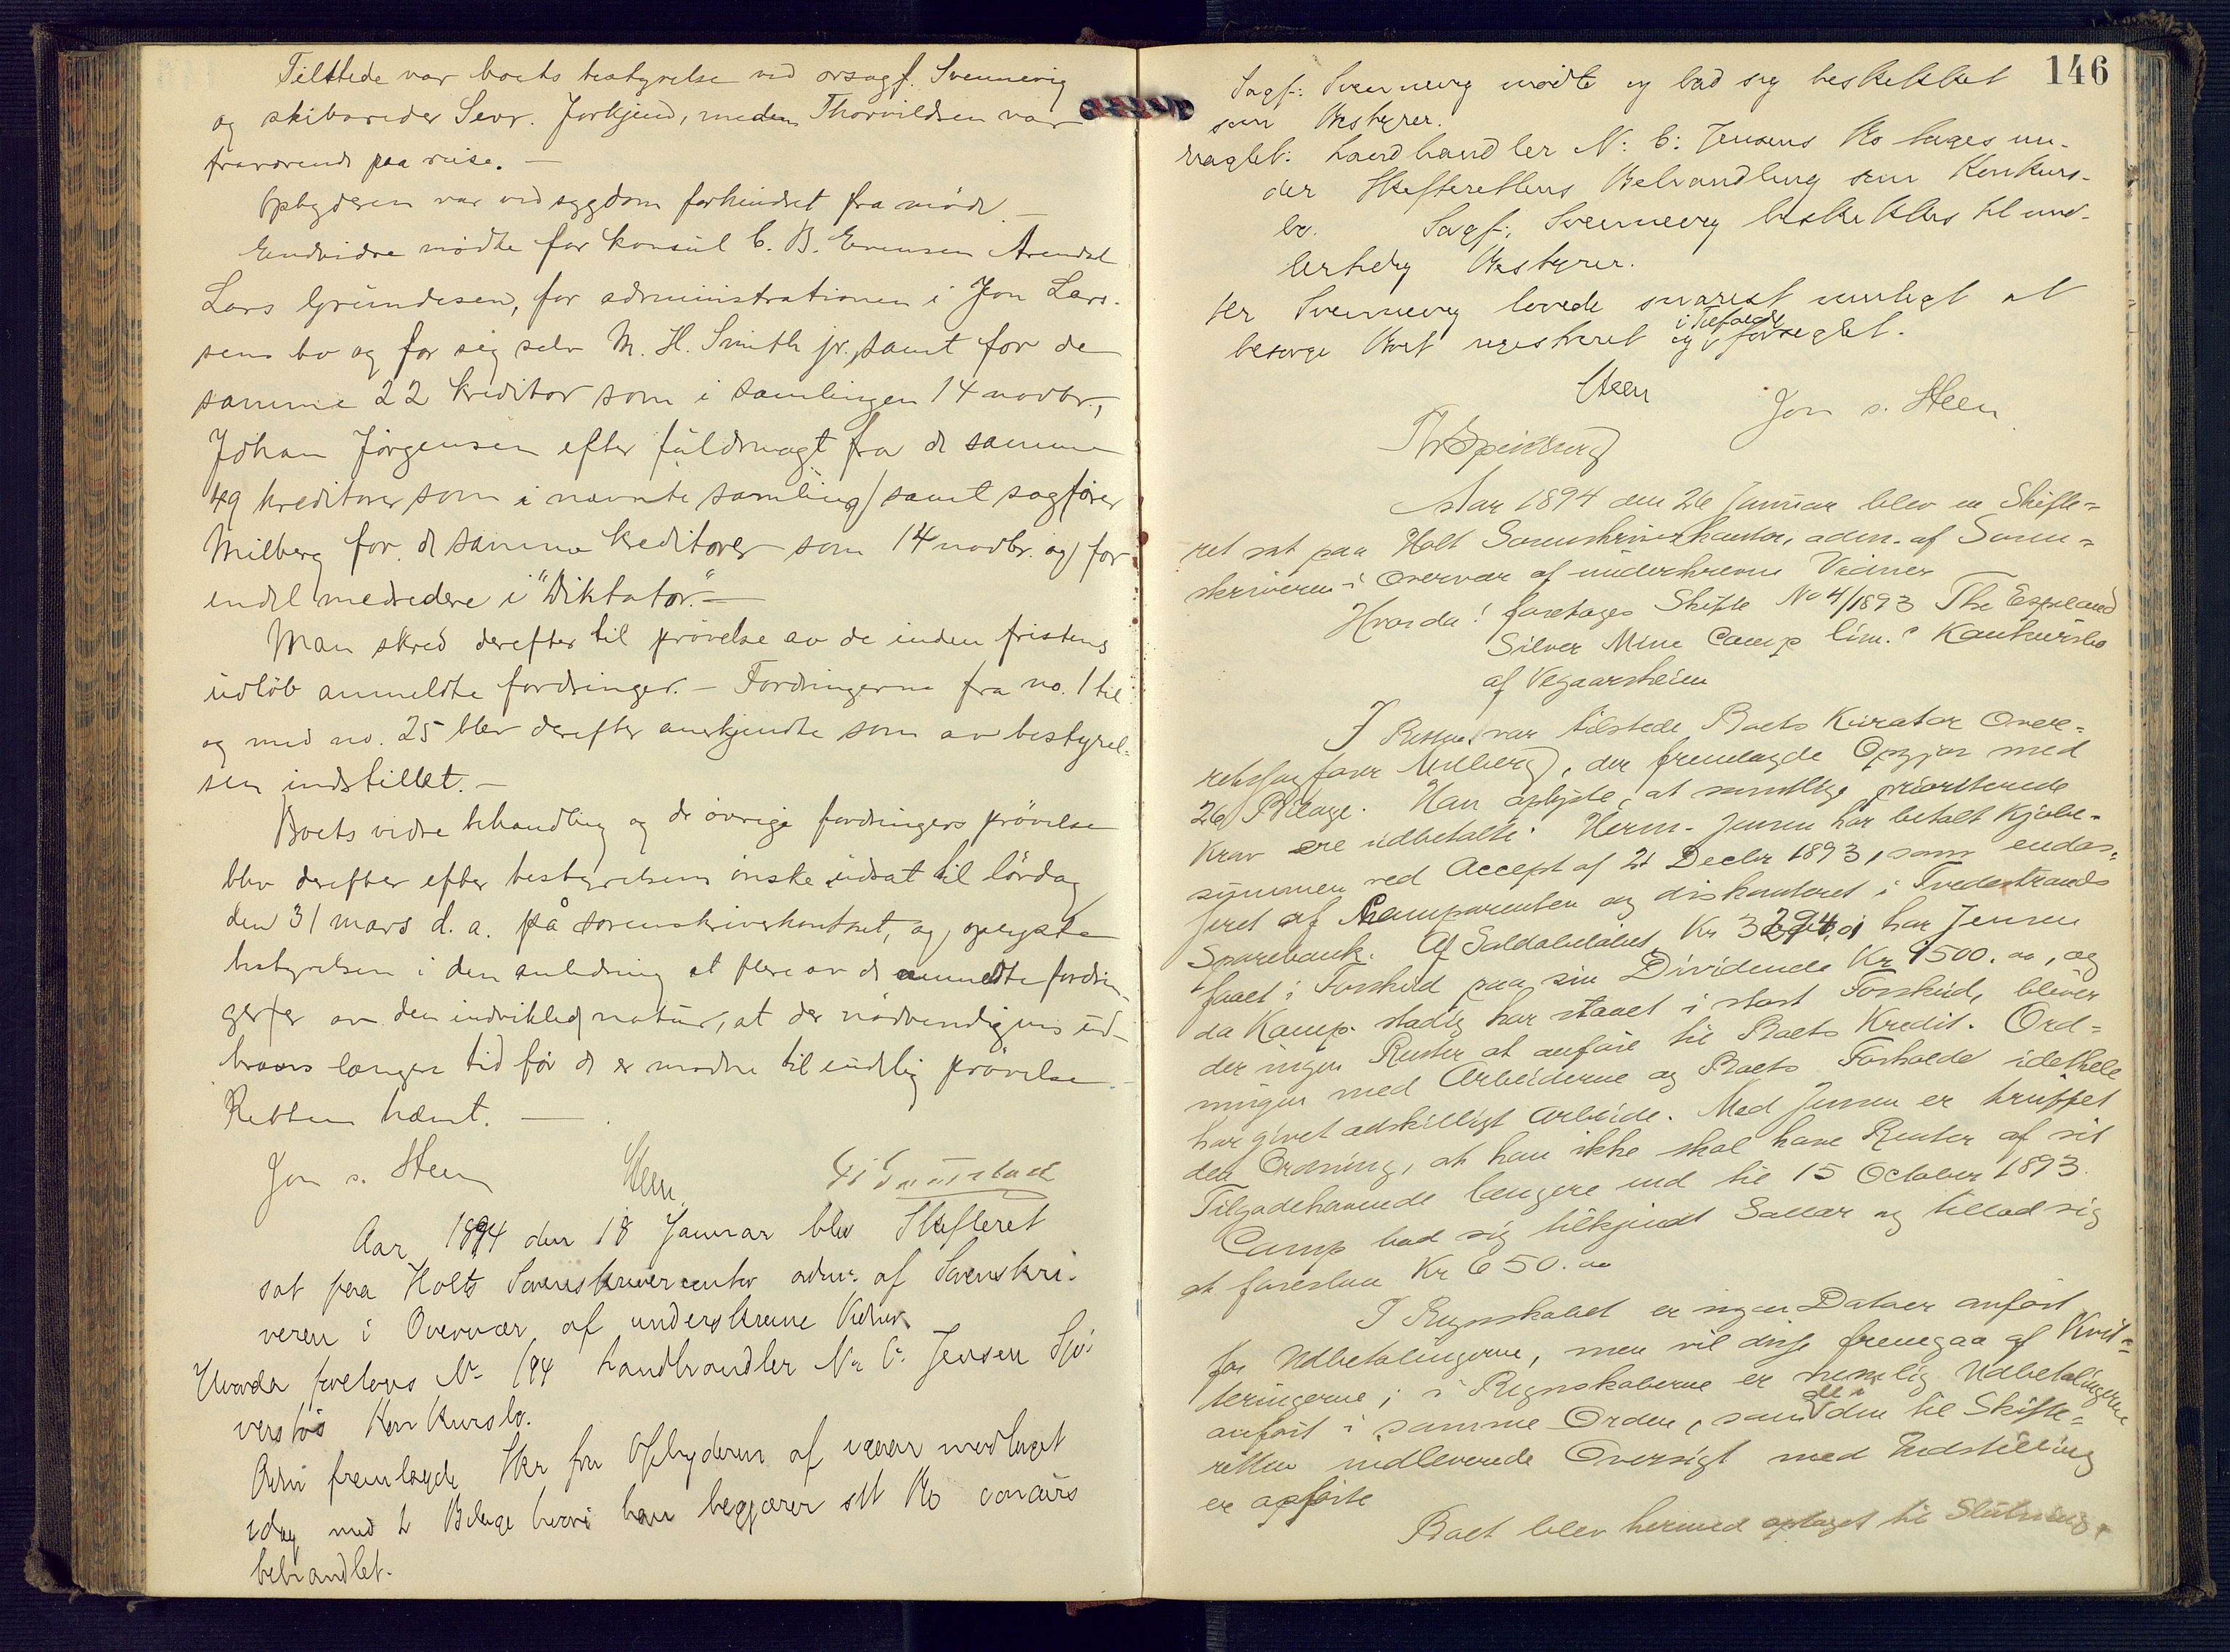 Tilstede var boets bestyrelse ved orsagf. Svennevig
og skibsreder Sevr. Jorkjend, meden Thorvildsen var
fraværende paa reise. —
Opbyderen var ved sygdom forhindret fra møde. —
Endvidre mødte for konsul C. B. Evensen Arendal
Lars Grundesen, for administrationen i Jon Lars-
sens bo og for sig selv M. H. Smith jr., samt for de
samme 22 kreditor som i samlingen 14 novbr.,
Johan Jørgensen efter fuldmagt fra de samme
49 kreditorer som i nævnte samling, samt sagfører
Milberg for de samme kreditorer som 14 novbr. og for
endel medredere i "Diktator". —
Man skred derefter til prøvelse av de inden fristens
udløb anmeldte fordringer. — Fordringerne fra no. 1 til
og med no. 25 blev derefter anerkjendte som av bestyrel-
sen indstillet. —
Boets vidre behandling og de øvrige fordringers prøvelse
blev derefter efter bestyrelsens ønske udsat til lørdag
den 31 mars d. a. på sorenskriverkontoret, og oplyste
bestyrelsen i den anledning at flere av de anmeldte fordrin-
ger er av den indviklede natur, at der nødvendigvis ud-
kræves længere tid før de er modne til endelig prøvelse. —
Retten hævet. —
Jon s. Steen Steen
Aar 1894 den 18 Januar blev Skifteret
sat paa Holts Sorenskrivercontor adm. af Sorenskri-
veren i Overvær af underskrevne Vidner
Hvorda foretoges No 1/94 Landhandler N. C. Jensen Sjø-
verstøs Konkursbo.
Adm fremlagde Skr fra Opbyderen af igaar modtaget
idag med 2 Bilage hvori han begjærer sit Bo concurs
behandlet.
146
Sagf. Svennevig mødte og bad sig beskikket
som Bestyrer.
vragtet: Landhandler N. C. Jensens Bo tages un-
der Skifterettens Behandling som Konkurs-
bo. Sagf. Svennevig beskikkes til mid-
lertidig Bestyrer.
Hr Svennevig lovede snarest muligt at
besørge Boet registreret og i Tilfælde forseglet.
Steen Jon s. Steen
Aar 1894 den 26 Januar blev en Skifte-
ret sat paa Holt Sorenskriverkontor, adm. af Soren-
skriveren i Overvær af underskrevne Vidner
Hvorda: foretoges Skifte No 4/1893 The Espeland
Silver Mine Comp lim.s Konkursbo
af Vegaarsheien
I Retten var tilstede Boets Kurator Over-
retssagfører Milberg, der fremlagde Opgjør med
26 Bilage. Han oplyste, at samtlige prioriterede
Krav ere udbetalte. Herm. Jensen har betalt Kjøbe-
summen ved Accept af 21 Decbr 1893, som endos-
seret af Komparenten og diskonteret i Tvedestrands
Sparebank. Af Saldobeløbet Kr 3294,01 har Jensen
faaet i Forskud paa sin Dividende Kr 1500.00, og
da Komp. stadig har staaet i stort Forskud, bliver
der ingen Renter at anføre til Boets Kredit. Ord-
ningen med Arbeiderne og Boets Forholde idethele
har givet adskilligt Arbeide. Med Jensen er truffet
den Ordning, at han ikke skal have Renter af sit
Tilgodehavende længere end til 15 October 1893.
Comp bad sig tilkjendt Sallær og tillod sig
at foreslaa Kr 650.00
I Regnskabet er ingen Datoer anført
for Udbetalingerne, men vil disse fremgaa af Kvit-
teringerne; i Regnskaberne er nemlig Udbetalingerne
anført i samme Orden, som de i den til Skifte-
retten indleverede Oversigt med Indstilling
er opførte
Boet blev hermed optaget til Slutning.